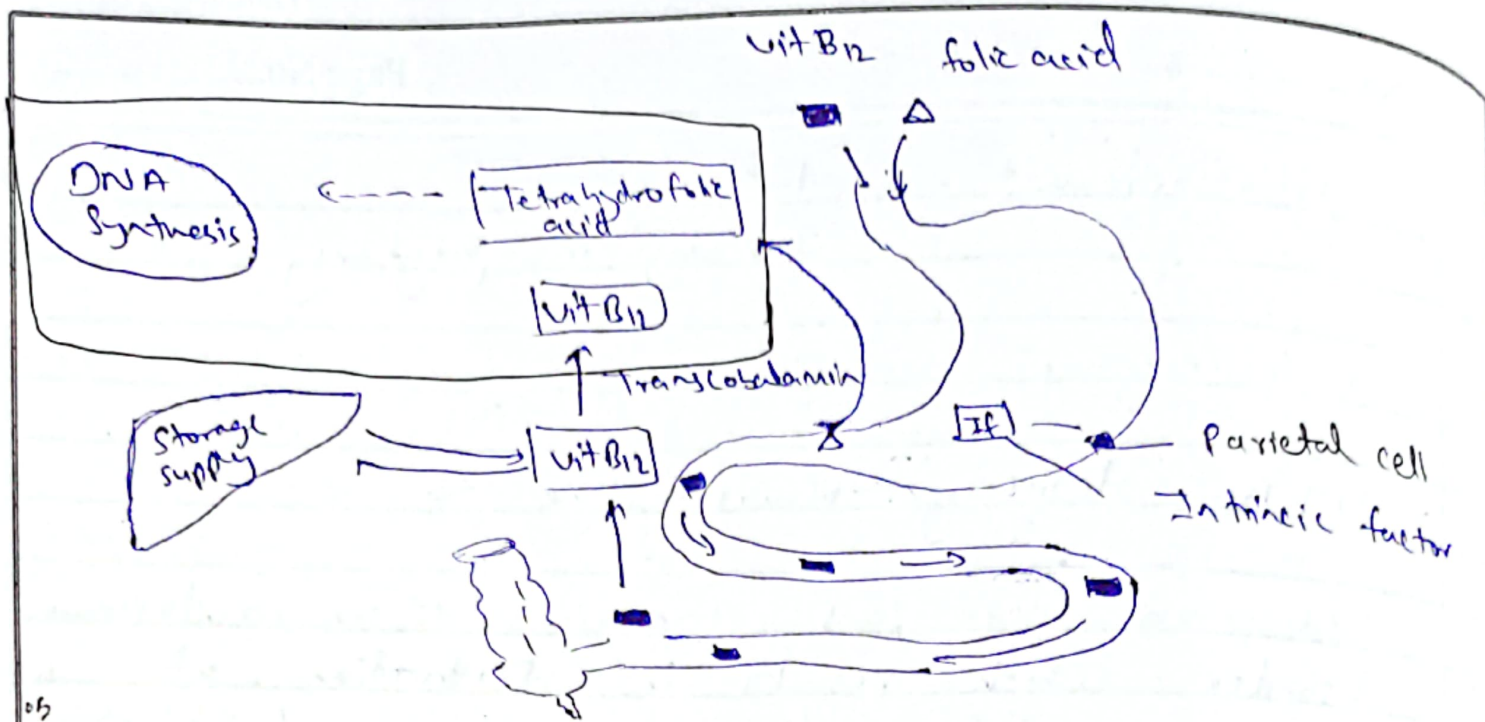 vit B12 folic acid
DNA
Synthesis
Tetrahydrofolic
acid
vit B12
Transcobalamin
Storage
supply
vit B12
If
Parietal cell
Intrinsic factor